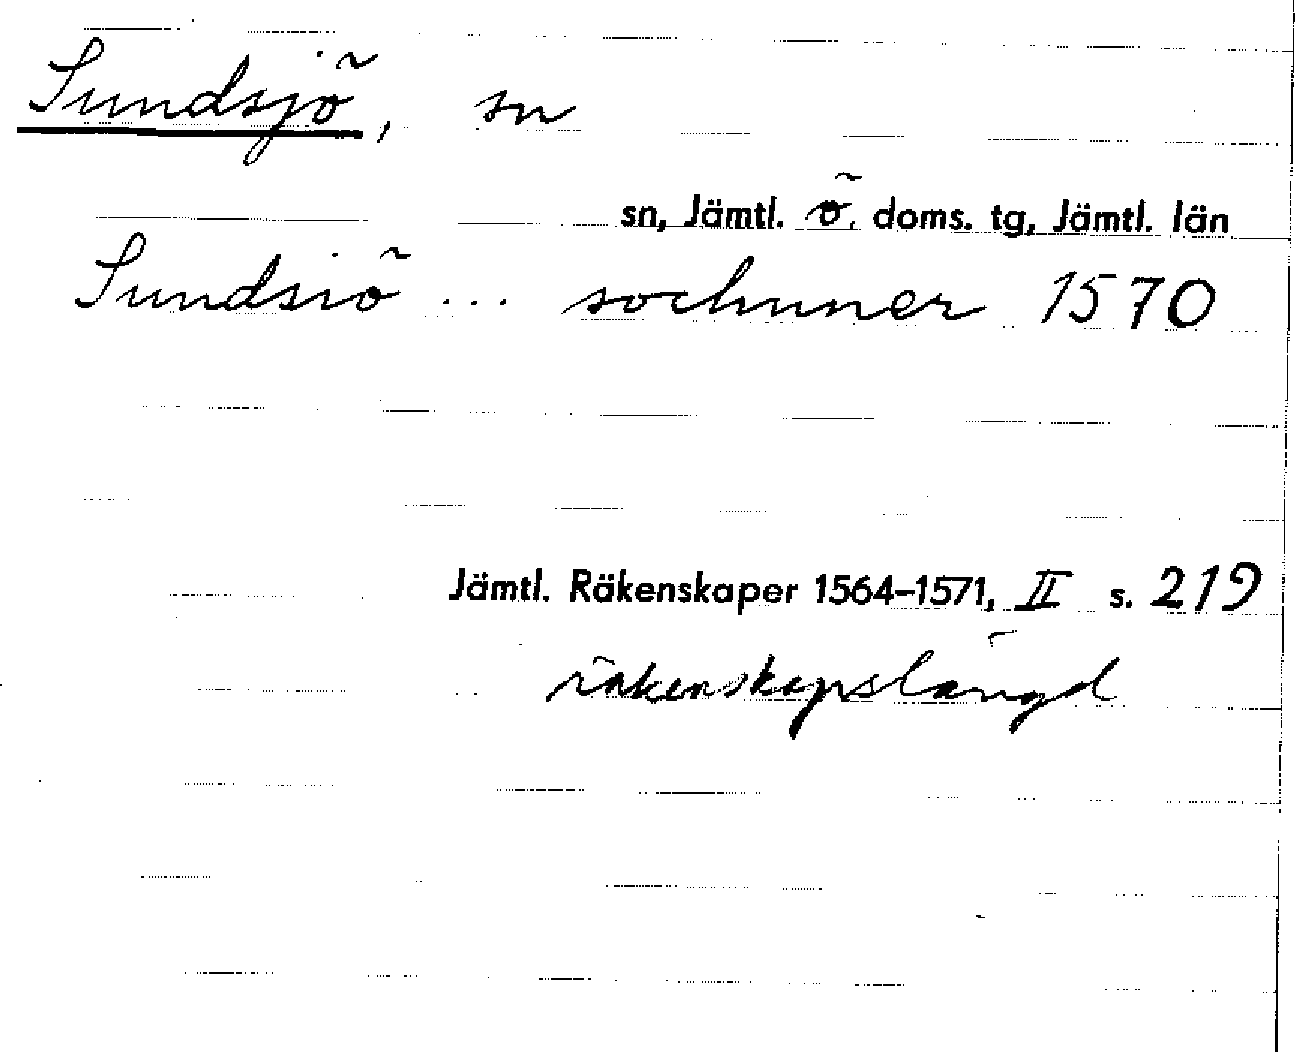 Sundsjö, sn
sn, Jämtl. ö. doms. tg, Jämtl. län
Sundsiö ... sochnner 1570
Jämtl. Räkenskaper 1564–1571, II s. 219
räkenskapslängd